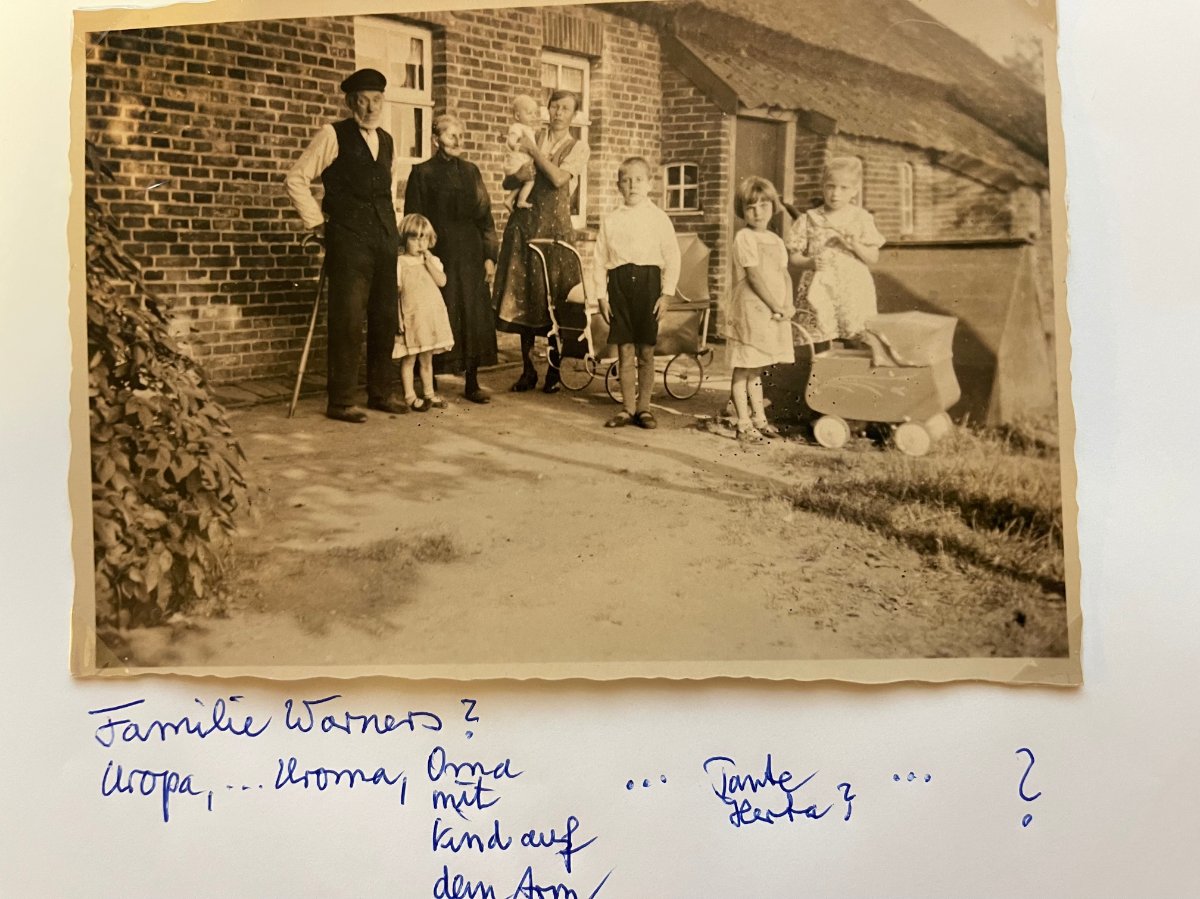 Familie Warners?
Uropa, ... Uroma, Oma ... Tante ... ?
mit Herta?
Kind auf
dem Arm